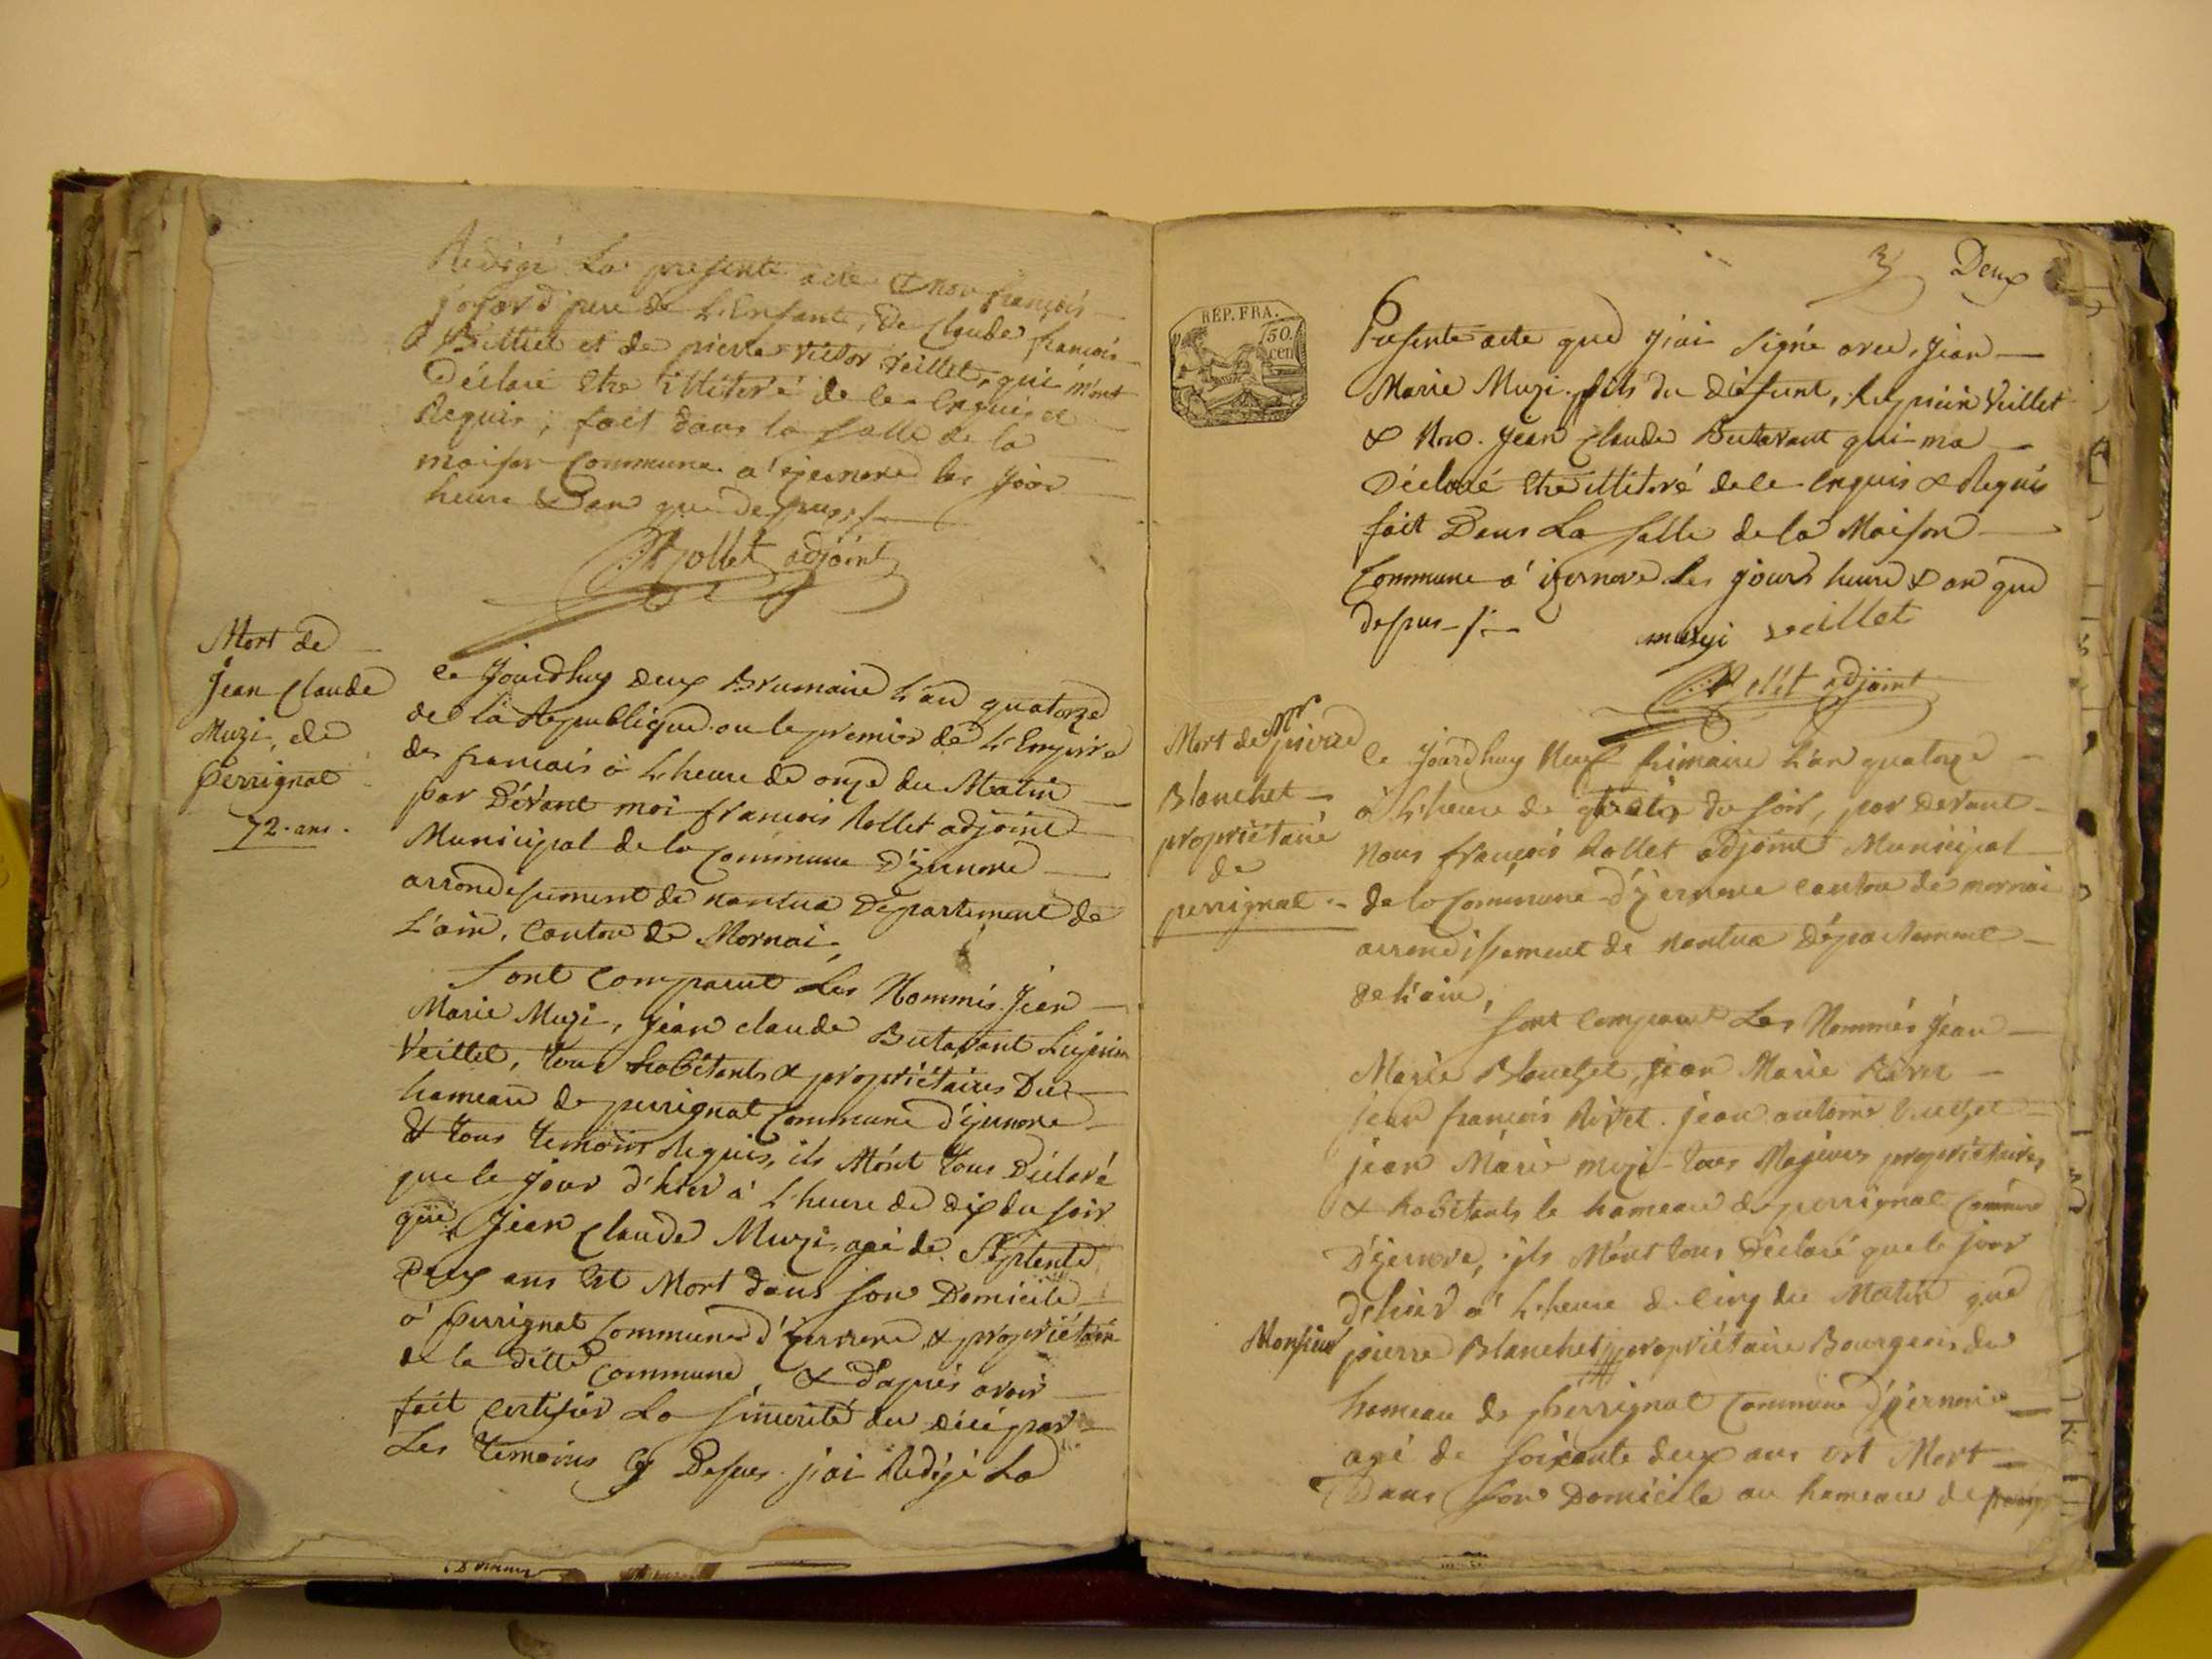 Redigé La presente acte & non françois
josard pere de L'Enfant, de Claude francois
Billiet et de pierre victor veillet, qui m'ont
Déclaré Etre illiteré de le Enquis et
Requis; fait dans la salle de la
maison Commune a izernore les jour
heure & an que dessus ./.
Rollet adjoint
Mort de
Jean Claude
Muzi, de
Perrignat
72. ans.
ce Jourdhuy deux Brumaire L'an quatorze
de la Republique ou le premier de L'Empire
des francais à L'heure de onze du Matin
par Dévant moi francois Rollet adjoint
Municipal de la Commune D'izernore
arrondissement de nantua Département de
L'ain, Canton de Mornai,
Sont Comparut Les Nommés Jean
Marie Muzi, Jean claude Butavant
Veillet, tous habitants & propriétaires Du
hameau de perrignat Commune d'izernore
& tous temoins Requis, ils Mónt tous Déclaré
que le jour d'hier à L'heure de dix du soir
que Jean Claude Muzi, agé de Septente
Deux ans Est Mort dans son Domicile
à Perrignat Commune d'izernore & propriétaire
de la ditte Commune, & d'aprés avoir
fait certifier La sincerité du décé par
Les temoins Cy Dessus. j'ai Rédigé La
3 Deux
REP. FRA.
50. cen
Presente acte que j'ai signé avec, Jean
Marie Muzi fils du défunt, Veillet
& Non. Jean Claude Butavant qui ma
Déclaré Etre illiteré de le Enquis & Requis
fait Dans La salle de la Maison
Commune a' izernore les jours heure & an que
dessus ./.
muzi veillet
Rollet adjoint
Mort de Mr pierre
Blanchet
propriétaire
de
perrignat
Ce Jourdhuy Neuf frimaire L'an quatorze
à L'heure de du soir, par devant
Nous françois Rollet adjoint Municipal
de la Commune d'izernore canton de mornai
arrondissement de nantua Département
de L'ain,
sont Comparut Les Nommés Jean
Marie Blanchet, jean Marie
jean françois Rivet. jean antoine
jean Marie muzi tous Majeurs propriétaires
& habitants le hameau de perrignat Commune
D'izernore, ils Mónt tous Déclaré que le jour
d'hier a' L'heure de Cinq du Matin que
Monsieur pierre Blanchet propriétaire Bourgeois du
hameau de Perrignat Commune d'izernore
agé de soixante deux ans est Mort
Dans son Domicile au hameau de